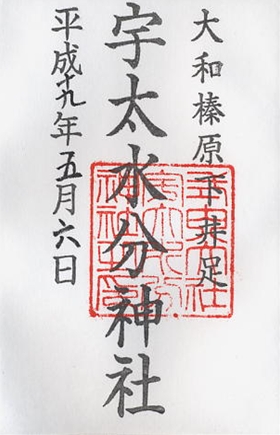 大和榛原下井足
宇太水分神社
平成十九年五月六日